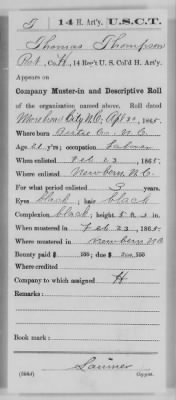 T | 14 H. Art'y. | U.S.C.T.
Thomas Thompson
Pvt., Co. H, 14 Reg't U. S. Col'd H. Art'y.
Appears on
Company Muster-in and Descriptive Roll
of the organization named above. Roll dated
Morehead City N.C., Apl 30, 1865.
Where born Bertie Co. N.C.
Age 21 y'rs; occupation
When enlisted Feb 23, 1865.
Where enlisted Newbern N.C.
For what period enlisted 3 years.
Eyes black; hair black
Complexion black; height 5 ft. in.
When mustered in Feb 23, 1865.
Where mustered in Newbern N.C.
Bounty paid $ 100; due $ 100
Where credited
Company to which assigned H
Remarks:
Book mark:
Copyist.